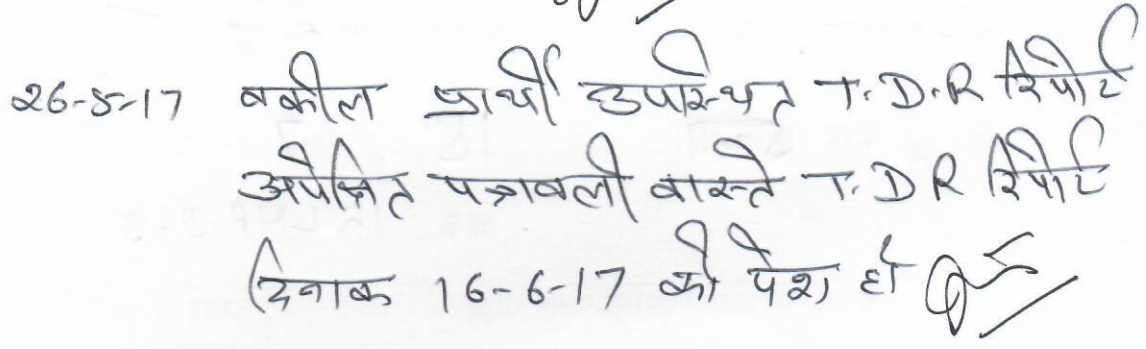 26-5-17 वकील प्रार्थी उपस्थित T.D.R रिपोर्ट
अपेक्षित पत्रावली वास्ते T.D R रिपोर्ट
दिनांक 16-6-17 को पेश हो